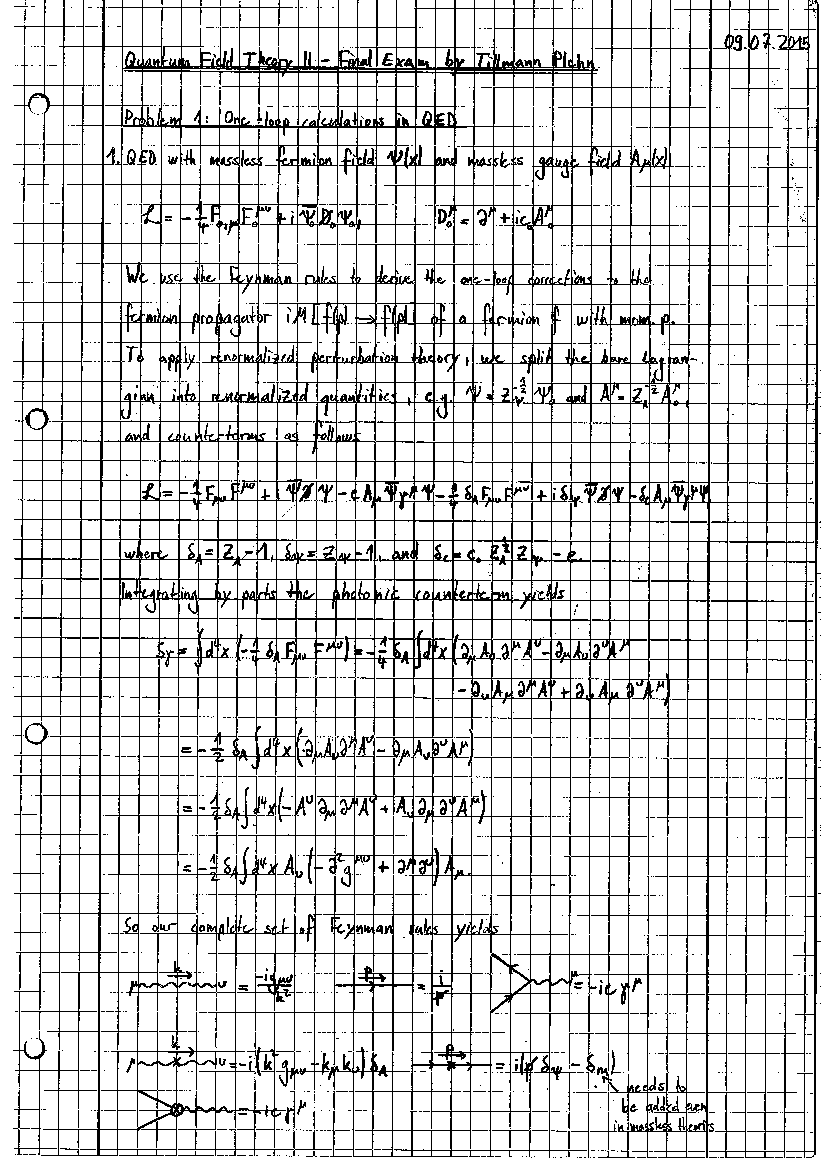 09.07.2015
Quantum Field Theory II - Final Exam by Tillmann Plehn
Problem 1: One-loop calculations in QED
1. QED with massless fermion field Ψ(x) and massless gauge field A_μ(x)
ℒ = -1/4 F_{0,μν} F_0^{μν} + i Ψ̄_0 D̸_0 Ψ_0, D_0^μ = ∂^μ + i e_0 A_0^μ
We use the Feynman rules to derive the one-loop corrections to the
fermion propagator iM[f(p) → f(p)] of a fermion f with mom. p.
To apply renormalized perturbation theory, we split the bare lagran-
gian into renormalized quantities, e.g. Ψ = Z_Ψ^{-1/2} Ψ_0 and A^μ = Z_A^{-1/2} A_0^μ,
and counter-terms as follows
ℒ = -1/4 F_{μν} F^{μν} + i Ψ̄ ∂̸ Ψ - e A_μ Ψ̄ γ^μ Ψ - 1/4 δ_A F_{μν} F^{μν} + i δ_Ψ Ψ̄ ∂̸ Ψ - δ_e A_μ Ψ̄ γ^μ Ψ
where δ_A = Z_A - 1, δ_Ψ = Z_Ψ - 1, and δ_e = e_0 Z_A^{1/2} Z_Ψ - e.
Integrating by parts the photonic counterterm yields
S_γ = ∫d⁴x (-1/4 δ_A F_{μν} F^{μν}) = -1/4 δ_A ∫d⁴x (∂_μ A_ν ∂^μ A^ν - ∂_μ A_ν ∂^ν A^μ
- ∂_ν A_μ ∂^μ A^ν + ∂_ν A_μ ∂^ν A^μ)
= -1/2 δ_A ∫d⁴x (∂_μ A_ν ∂^μ A^ν - ∂_μ A_ν ∂^ν A^μ)
= -1/2 δ_A ∫d⁴x (-A^ν ∂_μ ∂^μ A^ν + A_ν ∂_μ ∂^ν A^μ)
= -1/2 δ_A ∫d⁴x A_ν (-∂² g^{μν} + ∂^μ ∂^ν) A_μ.
So our complete set of Feynman rules yields
k μ ν = -i g_{μν}/k² p = i/p̸ μ = -ieγ^μ
k μ ν = -i(k² g_{μν} - k_μ k_ν) δ_A p = i(p̸ δ_Ψ - δ_m)
needs to
be added even
in massless theories
= -ieγ^μ